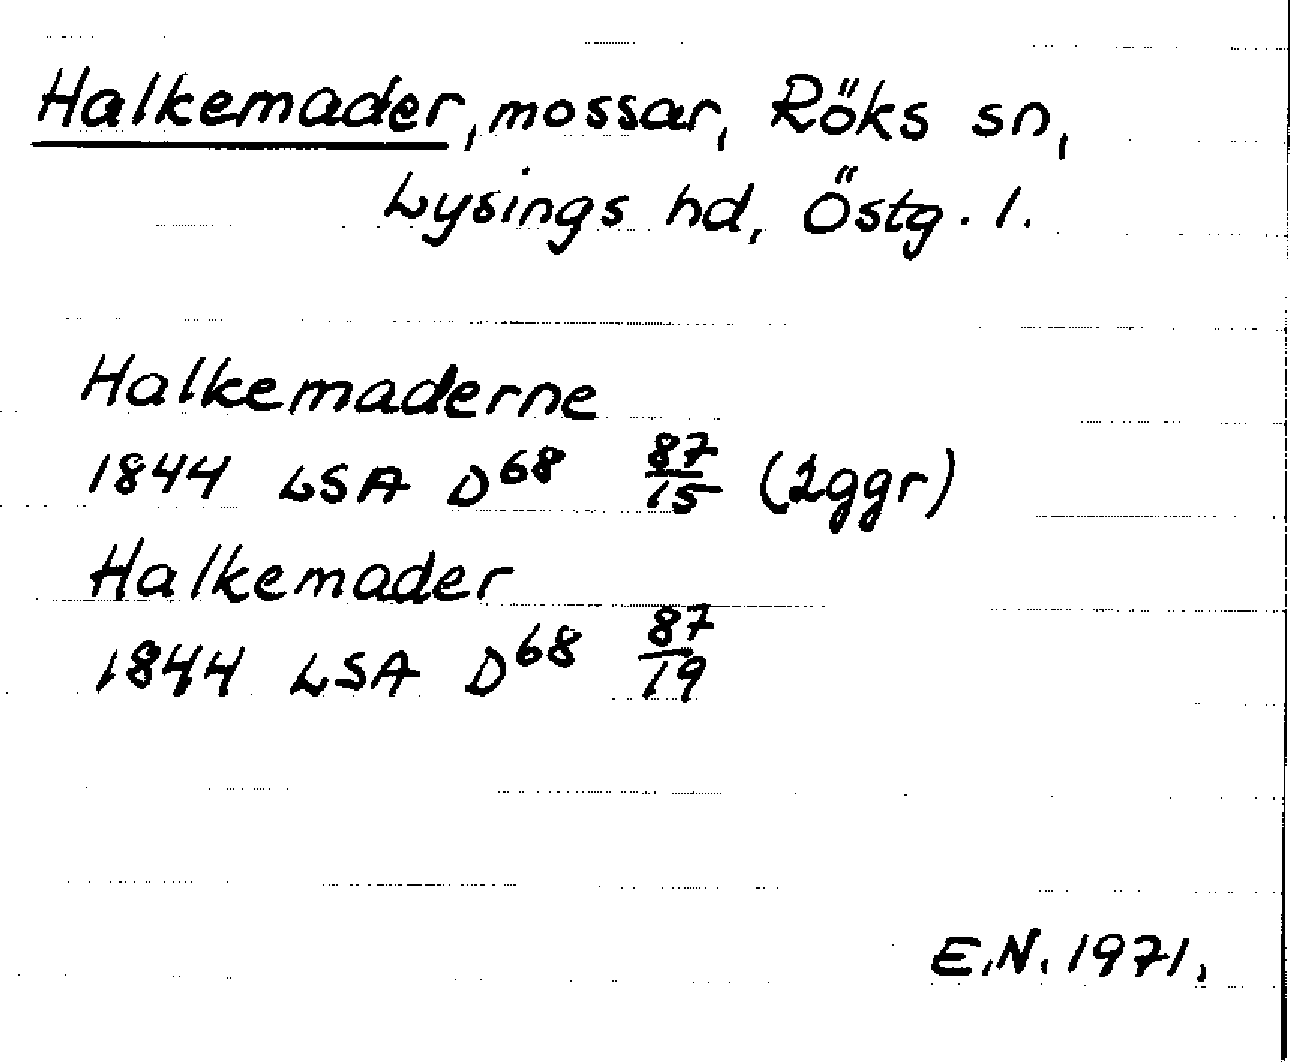 Halkemader, mossar, Röks sn,
Lysings hd, Östg. l.
Halkemaderne
1844 LSA D68 87/15 (2ggr)
Halkemader
1844 LSA D68 87/19
E.N. 1971.